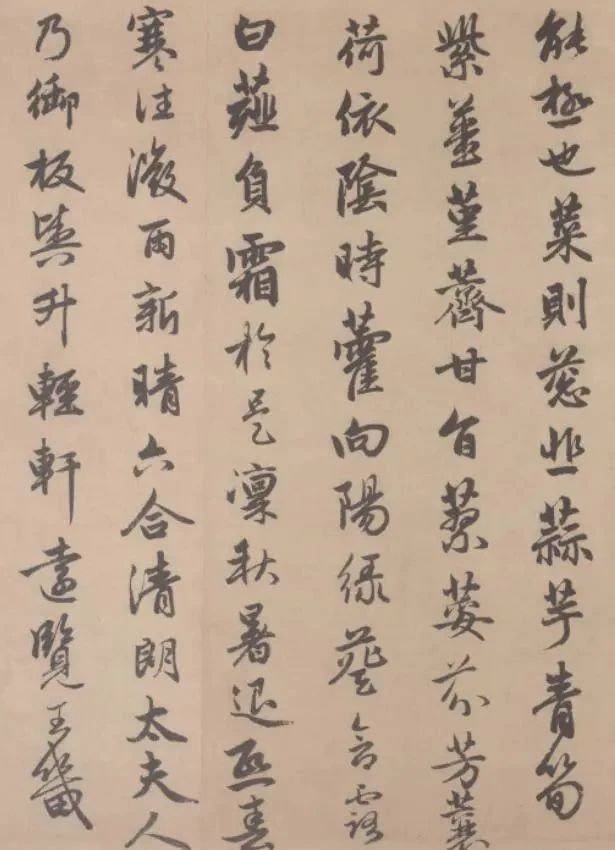 能極也菜則葱韭蒜芋青筍
紫薑堇薺甘旨蓼荽芬芳蘘
荷依陰時藿向陽緑葵含露
白薤負霜於是凜秋暑退熙春
寒往溦雨新晴六合清朗太夫人
乃御板輿升輕軒遠覽王畿